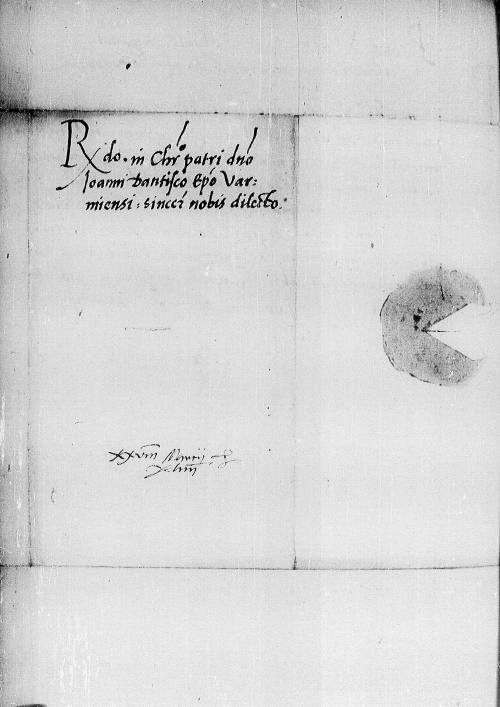 Rdo. in Chro patri dno
Joanni Dantisco Epo Var=
miensi: sincere nobis dilecto.
xxviii Marcii
xliiii